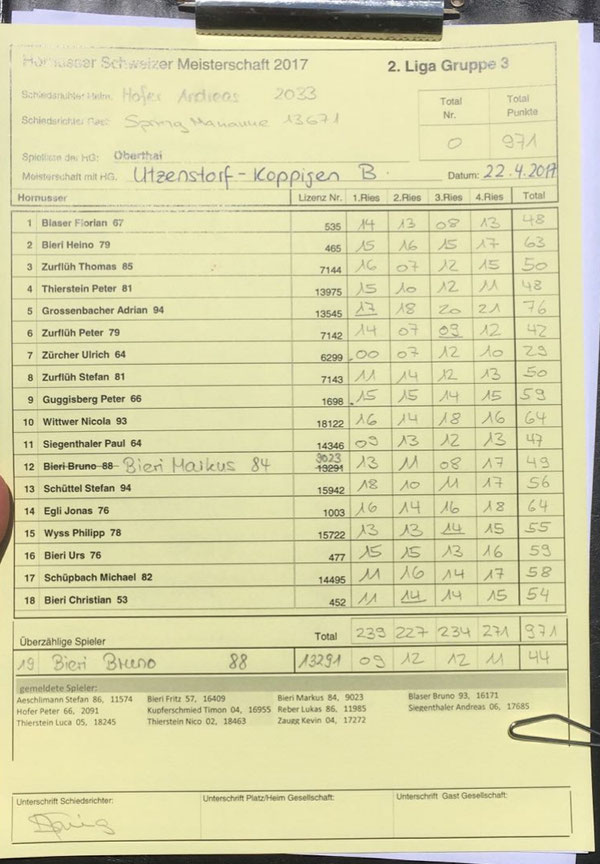 Hornusser Schweizer Meisterschaft 2017 2. Liga Gruppe 3
Hofer Andreas 2033
Total Nr. Total Punkte
Schiedsrichter Spring Marianne 13671
0 971
Spielliste der HG: Oberthal
Meisterschaft mit HG. Utzenstorf-Koppigen B. Datum: 22.4.2017
Hornusser Lizenz Nr. 1.Ries 2.Ries 3.Ries 4.Ries Total
1 Blaser Florian 67 535 14 13 08 13 48
2 Bieri Heino 79 465 15 16 15 17 63
3 Zurflüh Thomas 85 7144 16 07 12 15 50
4 Thierstein Peter 81 13975 15 10 12 11 48
5 Grossenbacher Adrian 94 13545 17 18 20 21 76
6 Zurflüh Peter 79 7142 14 07 09 12 42
7 Zürcher Ulrich 64 6299 00 07 12 10 29
8 Zurflüh Stefan 81 7143 11 14 12 13 50
9 Guggisberg Peter 66 1698 15 15 14 15 59
10 Wittwer Nicola 93 18122 16 14 18 16 64
11 Siegenthaler Paul 64 14346 09 13 12 13 47
12 Bieri Bruno 88 Bieri Markus 84 9023 13291 13 11 08 17 49
13 Schüttel Stefan 94 15942 18 10 11 17 56
14 Egli Jonas 76 1003 16 14 16 18 64
15 Wyss Philipp 78 15722 13 13 14 15 55
16 Bieri Urs 76 477 15 15 13 16 59
17 Schüpbach Michael 82 14495 11 16 14 17 58
18 Bieri Christian 53 452 11 14 14 15 54
Überzählige Spieler Total 239 227 234 271 971
19 Bieri Bruno 88 13291 09 12 12 11 44
gemeldete Spieler:
Aeschlimann Stefan 86, 11574 Bieri Fritz 57, 16409 Bieri Markus 84, 9023 Blaser Bruno 93, 16171
Hofer Peter 66, 2091 Kupferschmied Timon 04, 16955 Reber Lukas 86, 11985 Siegenthaler Andreas 06, 17685
Thierstein Luca 05, 18245 Thierstein Nico 02, 18463 Zaugg Kevin 04, 17272
Unterschrift Schiedsrichter: Unterschrift Platz/Heim Gesellschaft: Unterschrift Gast Gesellschaft: